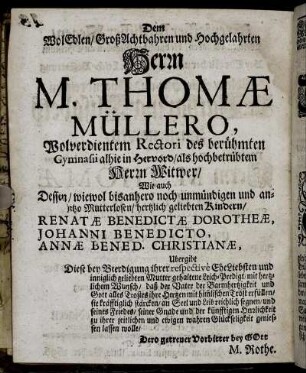 Dem
WolEdlen/ GroßAchtbahren und Hochgelahrten
Herrn
M. THOMÆ
MÜLLERO,
Wolverdientem Rectori des berühmten
Gymnasii alhie in Hervord/ als hochbetrübtem
Herrn Witwer/
Wie auch
Dessen/ wiewol bisanhero noch unmündigen und an-
nitzo Mutterlosen/ hertzlich geliebten Kindern/
RENATÆ BENEDICTÆ DOROTHEÆ,
JOHANNI BENEDICTO,
ANNÆ BENED. CHRISTIANÆ,
Ubergibt
Diese bey Beerdigung ihrer respectivè EheLiebsten und
inniglich geliebten Mutter gehaltene Leich-Predigt mit hertz-
lichem Wunsch/ daß der Vater der Barmhertzigkeit und
Gott alles Trostes ihre Hertzen mit himlischen Trost erfüllen/
sie kräfftiglich stärcken/ an Seel und Leib reichlich segnen/ und
seines Friedes/ seiner Gnade und der künfftigen Herrlichkeit
zu ihrer zeitlichen und ewigen wahren Glückseligkeit genies-
sen lassen wolle/
Dero getreuer Vorbitter bey GOtt
M. Rothe.